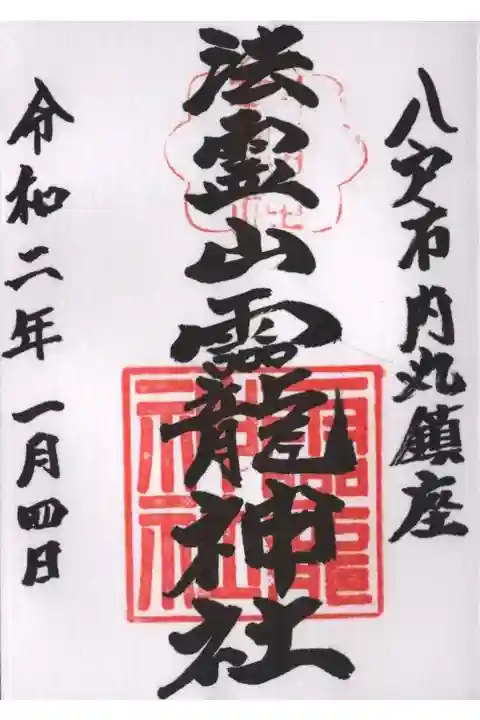 八戸市内丸鎮座
法霊山龗龍神社
令和二年一月四日
龗龍
神社